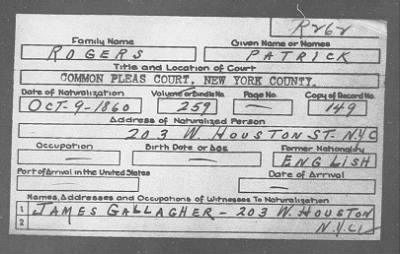 R262
Family Name Given Name or Names
ROGERS PATRICK
Title and Location of Court
COMMON PLEAS COURT, NEW YORK COUNTY.
Date of Naturalization Volume or Bundle No. Page No. Copy of Record No.
OCT-9-1860 259 — 149
Address of Naturalized Person
203 W. HOUSTON ST. N.Y.C
Occupation Birth Date or Age Former Nationality
— — ENGLISH
Port of Arrival in the United States Date of Arrival
— —
Names, Addresses and Occupations of Witnesses To Naturalization
1 JAMES GALLAGHER - 203 W. HOUSTON
2 N.Y.C.